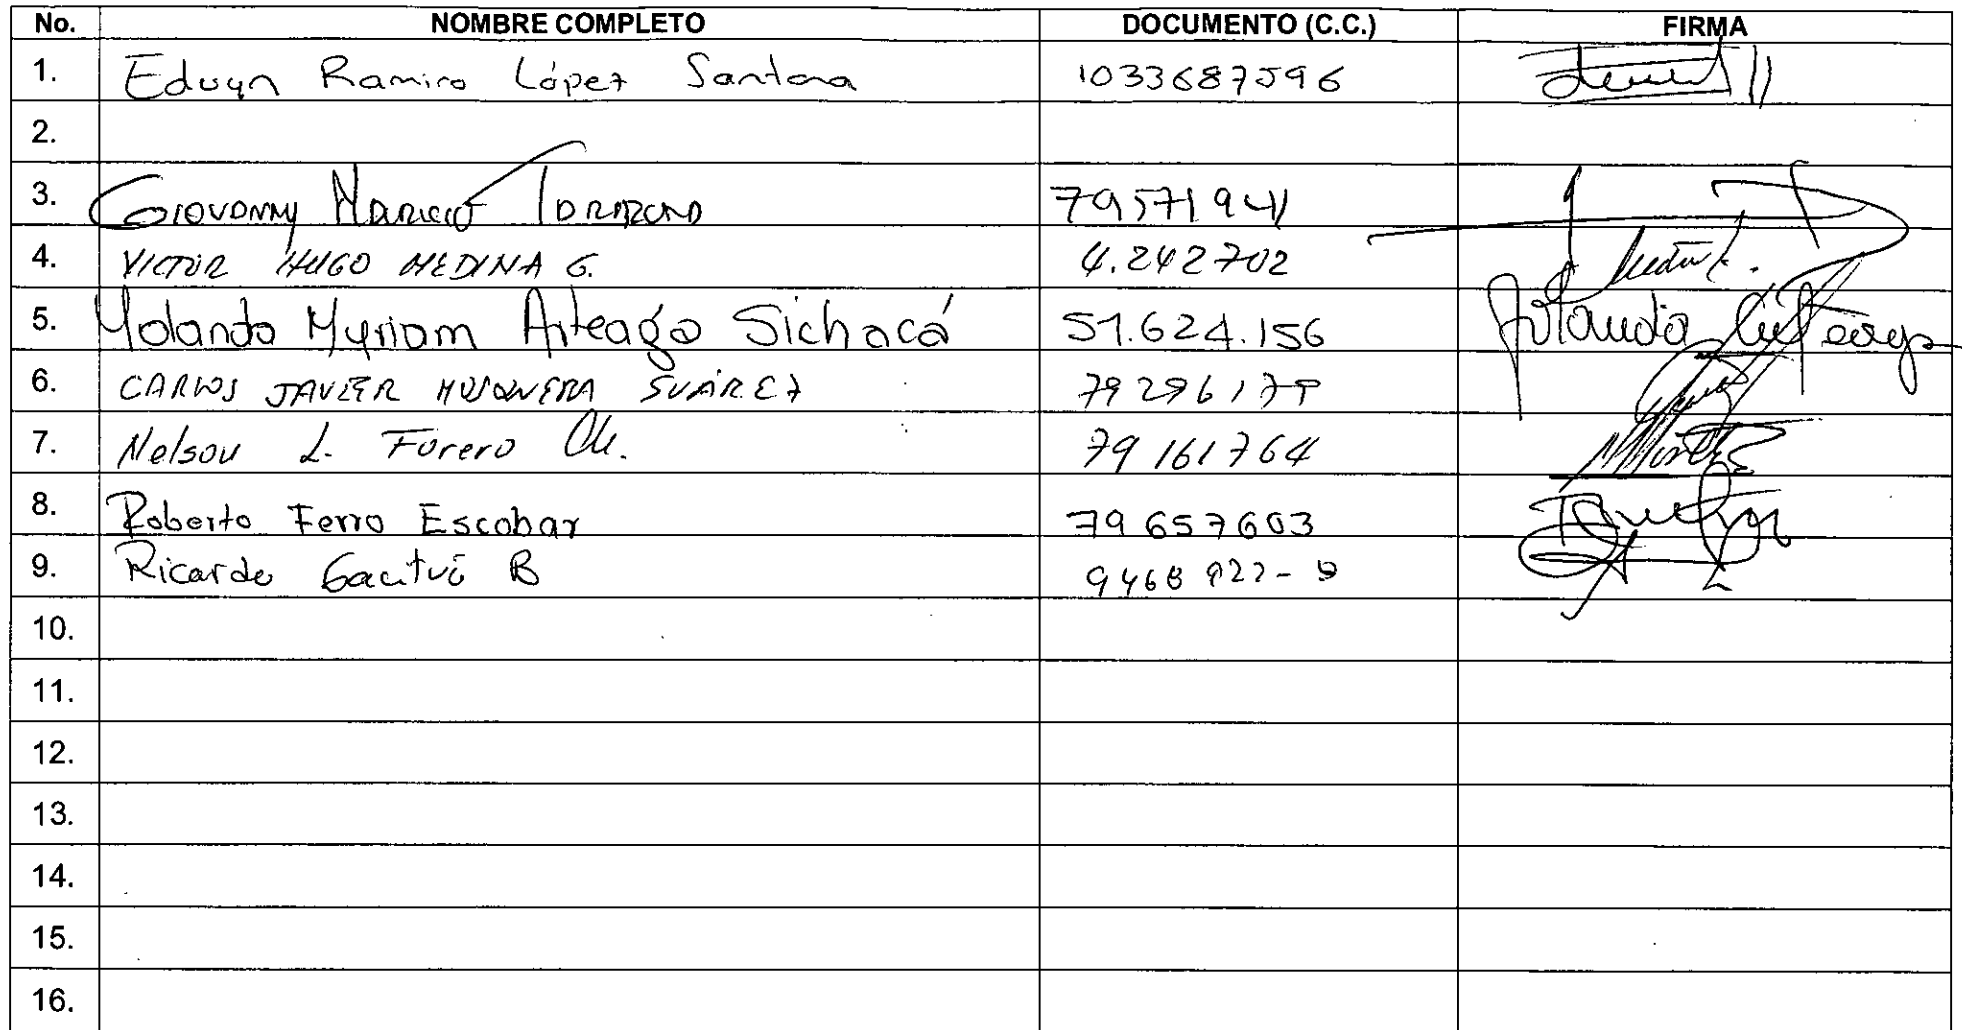 No. NOMBRE COMPLETO DOCUMENTO (C.C.) FIRMA
1. Eduyn Ramiro López Santana 1033687596
2.
3. Giovanny Mauricio Tarazona 79571941
4. VICTOR HUGO MEDINA G. 4.242702
5. Yolanda Myriam Arteaga Sichacá 51.624.156 Yolanda Arteaga
6. CARLOS JAVIER MOSQUERA SUÁREZ
7. Nelson L. Forero Ch. 79161764
8. Roberto Ferro Escobar 79657603
9. Ricardo Gacitúa B
10.
11.
12.
13.
14.
15.
16.